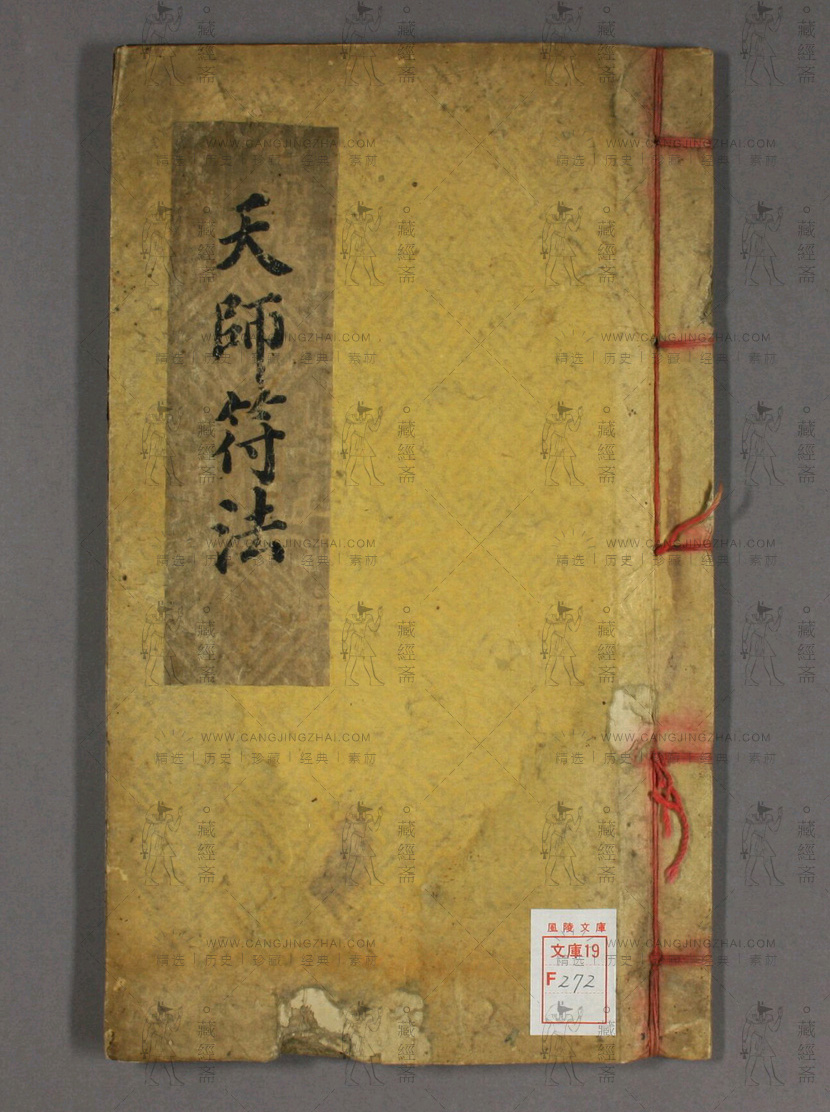 天師符法
風陵文庫
文庫19
F272
WWW.CANGJINGZHAI.COM
精选｜历史｜珍藏｜经典｜素材
藏經斋